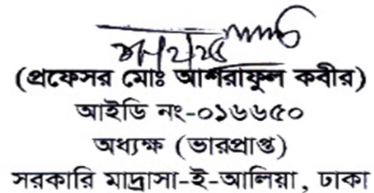 (প্রফেসর মোঃ আশরাফুল কবীর)
আইডি নং-০১৬৬৫০
অধ্যক্ষ (ভারপ্রাপ্ত)
সরকারি মাদ্রাসা-ই-আলিয়া, ঢাকা